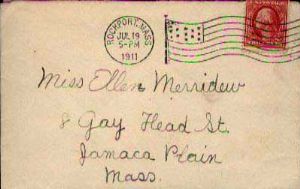 ROCKPORT, MASS.
JUL 19
5-PM
1911
Miss Ellen Merridew
8 Gay Head St.
Jamaca Plain
Mass.